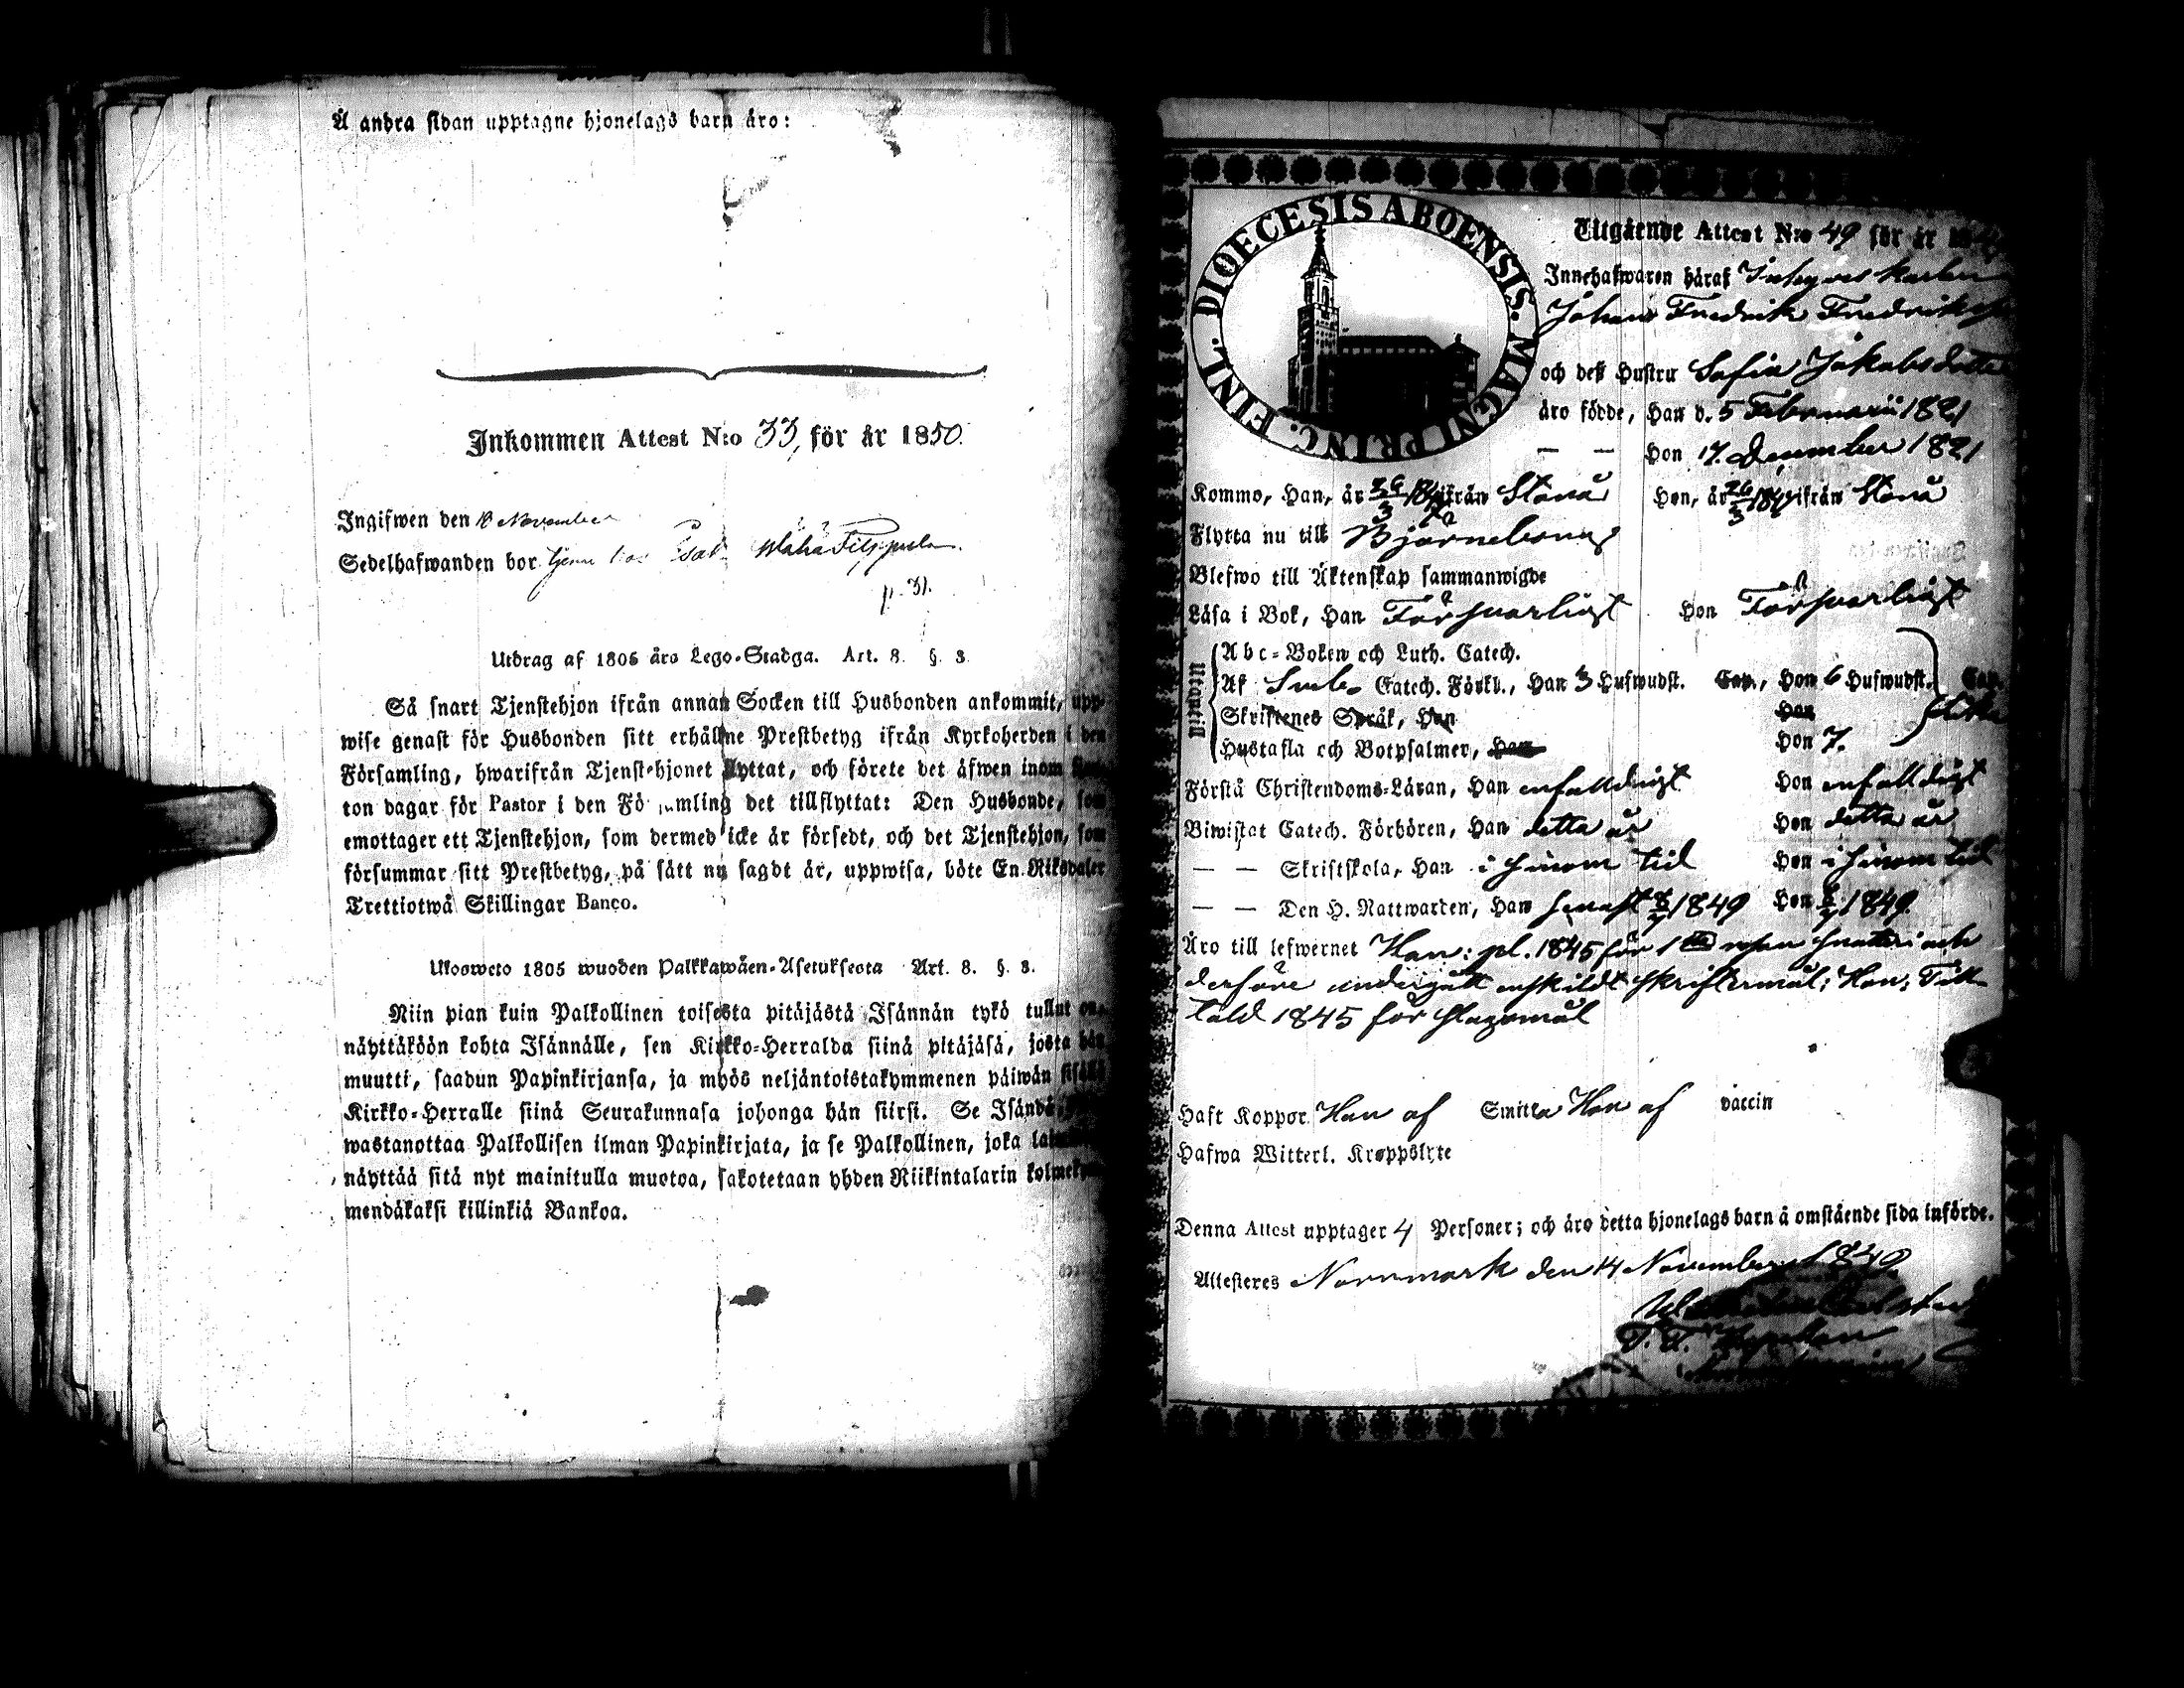 Å andra sidan upptagne hjonelags barn äro:
Inkommen Attest N:o 33, för år 1850.
Ingifwen den 18 November
Sedelhafwanden bor
p. 31.
Utdrag af 1805 års Lego-Stadga. Art. 8. §. 3.
Så snart Tjenstehjon ifrån annan Socken till Husbonden ankommit, upp-
wise genast för Husbonden sitt erhållne Prestbetyg ifrån Kyrkoherden i den
Församling, hwarifrån Tjenstehjonet flyttat, och förete det äfwen inom
ton dagar för Pastor i den Församling det tillflyttat: Den Husbonde, som
emottager ett Tjenstehjon, som dermed icke är försedt, och det Tjenstehjon, som
försummar sitt Prestbetyg, på sätt nu sagdt är, uppwisa, böte En Riksdaler
Trettiotwå Skillingar Banco.
Ulosweto 1805 wuoden Palkkawäen-Asetuksesta Art. 8. §. 3.
Niin pian kuin Palkollinen toisesta pitäjästä Isännän tykö tullut on,
näyttäköön kohta Isännälle, sen Kirkko-Herralda siinä pitäjäsä, josta hän
muutti, saadun Papinkirjansa, ja myös neljäntoistakymmenen päiwän sisällä
Kirkko-Herralle siinä Seurakunnasa johonga hän siirsi. Se Isändä,
wastanottaa Palkollisen ilman Papinkirjata, ja se Palkollinen, joka
näyttää sitä nyt mainitulla muotoa, sakotetaan yhden Riikintalarin kolmekym-
mendäkaksi killinkiä Bankoa.
DIOECESIS ABOENSIS. MAGNI PRINC. FINL.
Utgående Attest N:o 49 för år
Innehafwaren häraf Inhyses Karlen
Johan Fredrik Fredriksson
och deß Hustru Sofia Jakobsdotter
äro födde, Han d. 5 Februarii 1821
— — Hon 17. December 1821
Komme, Han, år 26/3 184 ifrån Stôra Hon, år 26/3 184 ifrån Stôra
Flytta nu till Björneborg
Blefwo till Äktenskap sammanwigde
Läsa i Bok, Han Förswarligt Hon Förswarligt
Utantill
Abc-Boken och Luth. Catech.
Af Sweb. Catech. Förkl., Han 3 Hufwudst. Cap., Hon 6 Hufwudst. Cap.
Skriftenes Språk, Han Han
Hustafla och Botpsalmer, Han Hon 7.
Förstå Christendoms-Läran, Han enfalldigt Hon enfalldigt
Biwistat Catech. Förhören, Han detta år Hon detta år
— — Skriftskola, Han i sinom tid Hon i sinom tid
— — Den H. Nattwarden, Han senast 8/7 1849 Hon 8/7 1849
Äro till lefwernet Han: pl. 1845 för 1sta resan snatteri och
derföre undergått enskildt skriftermål; Hon: Till-
tald 1845 för slagsmål
Haft Koppor Han af Smitta Hon af vaccin
Hafwa Witterl. Kroppslyte
Denna Attest upptager 4 Personer; och äro detta hjonelags barn å omstående sida införde.
Attesteres Norrmark den 14 November 1849.